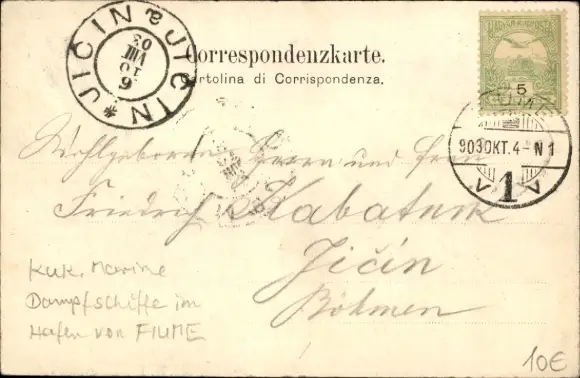 JIČÍN * JIČÍN
6
10
VIII
03
Correspondenzkarte.
Cartolina di Corrispondenza.
MAGYAR KIR. POSTA
5
FIUME
903 OKT. 4 - N 1
1
Wohlgeboren Herrn und Frau
Friedrich Kabatnik
Jičín
Böhmen
KuK. Marine
Dampfschiffe im
Hafen von FIUME
10€